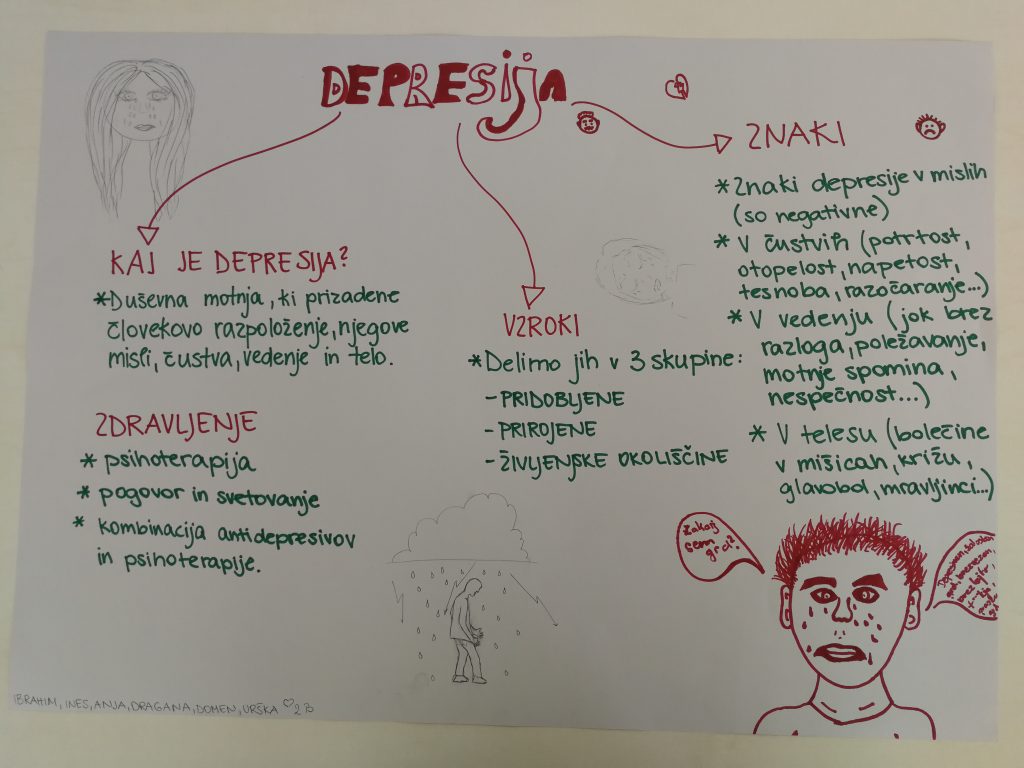 DEPRESija
KAJ JE DEPRESIJA?
*Duševna motnja, ki prizadene
človekovo razpoloženje, njegove
misli, čustva, vedenje in telo.
ZDRAVLJENJE
* psihoterapija
* pogovor in svetovanje
* kombinacija antidepresivov
in psihoterapije.
VZROKI
*Delimo jih v 3 skupine:
- PRIDOBLJENE
- PRIROJENE
- ŽIVLJENJSKE OKOLIŠČINE
ZNAKI
*Znaki depresije v mislih
(so negativne)
* V čustvih (potrtost,
otopelost, napetost,
tesnoba, razočaranje...)
* V vedenju (jok brez
razloga, poležavanje,
motnje spomina,
nespečnost...)
* V telesu (bolečine
v mišicah, križu,
glavobol, mravljinci...)
Zakaj
sem
grd?
IBRAHIM, INES, ANJA, DRAGANA, DOMEN, URŠKA ♡ 2B